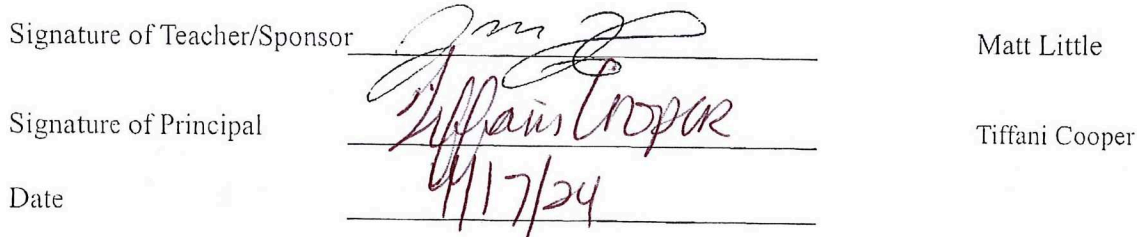 Signature of Teacher/Sponsor Matt Little
Signature of Principal Tiffani Cooper Tiffani Cooper
Date 4/17/24